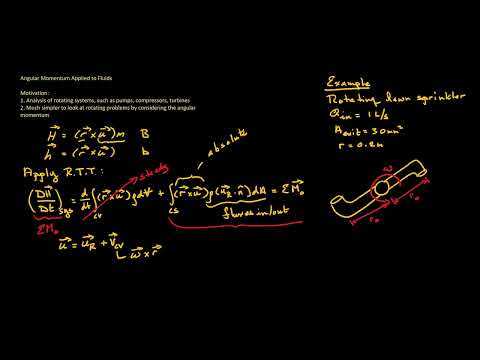 Angular Momentum Applied to Fluids
Motivation:
1. Analysis of rotating systems, such as pumps, compressors, turbines
2. Much simpler to look at rotating problems by considering the angular
momentum
H⃗ = (r⃗ × u⃗)m B
h⃗ = (r⃗ × u⃗) b
Apply R.T.T.:
steady
absolute
(DH⃗/Dt)sys = d/dt ∫cv (r⃗ × u⃗)ρdV + ∫cs (r⃗ × u⃗) ρ(u⃗R · n̂)dA = ΣM⃗o
ΣM⃗o
fluxes in/out
u⃗ = u⃗R + V⃗cv
ω⃗ × r⃗
Example
Rotating lawn sprinkler
Qin = 1 L/s
Aexit = 30mm²
r = 0.2m
ω
ro
ro